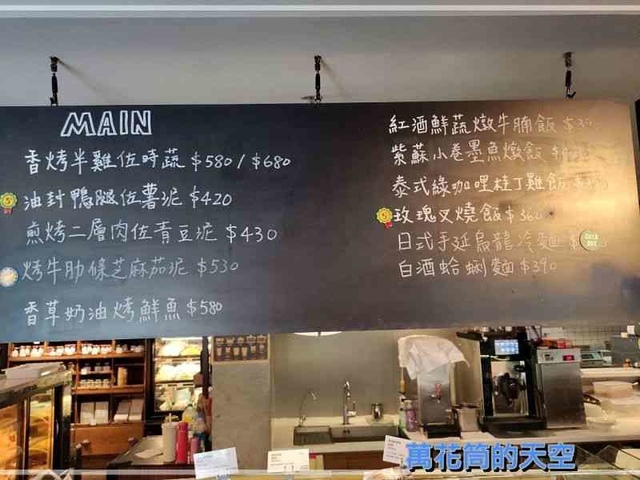 MAIN
香烤半雞佐時蔬 $580/$680
油封鴨腿佐薯泥 $420
煎烤二層肉佐青豆泥 $430
烤牛肋條芝麻茄泥 $530
香草奶油烤鮮魚 $580
紅酒鮮蔬燉牛腩飯
紫蘇小卷墨魚燉飯
泰式綠咖哩桂丁雞飯
玫瑰叉燒飯 $360
日式手延烏龍冷麵
白酒蛤蜊麵 $390
萬花筒的天空